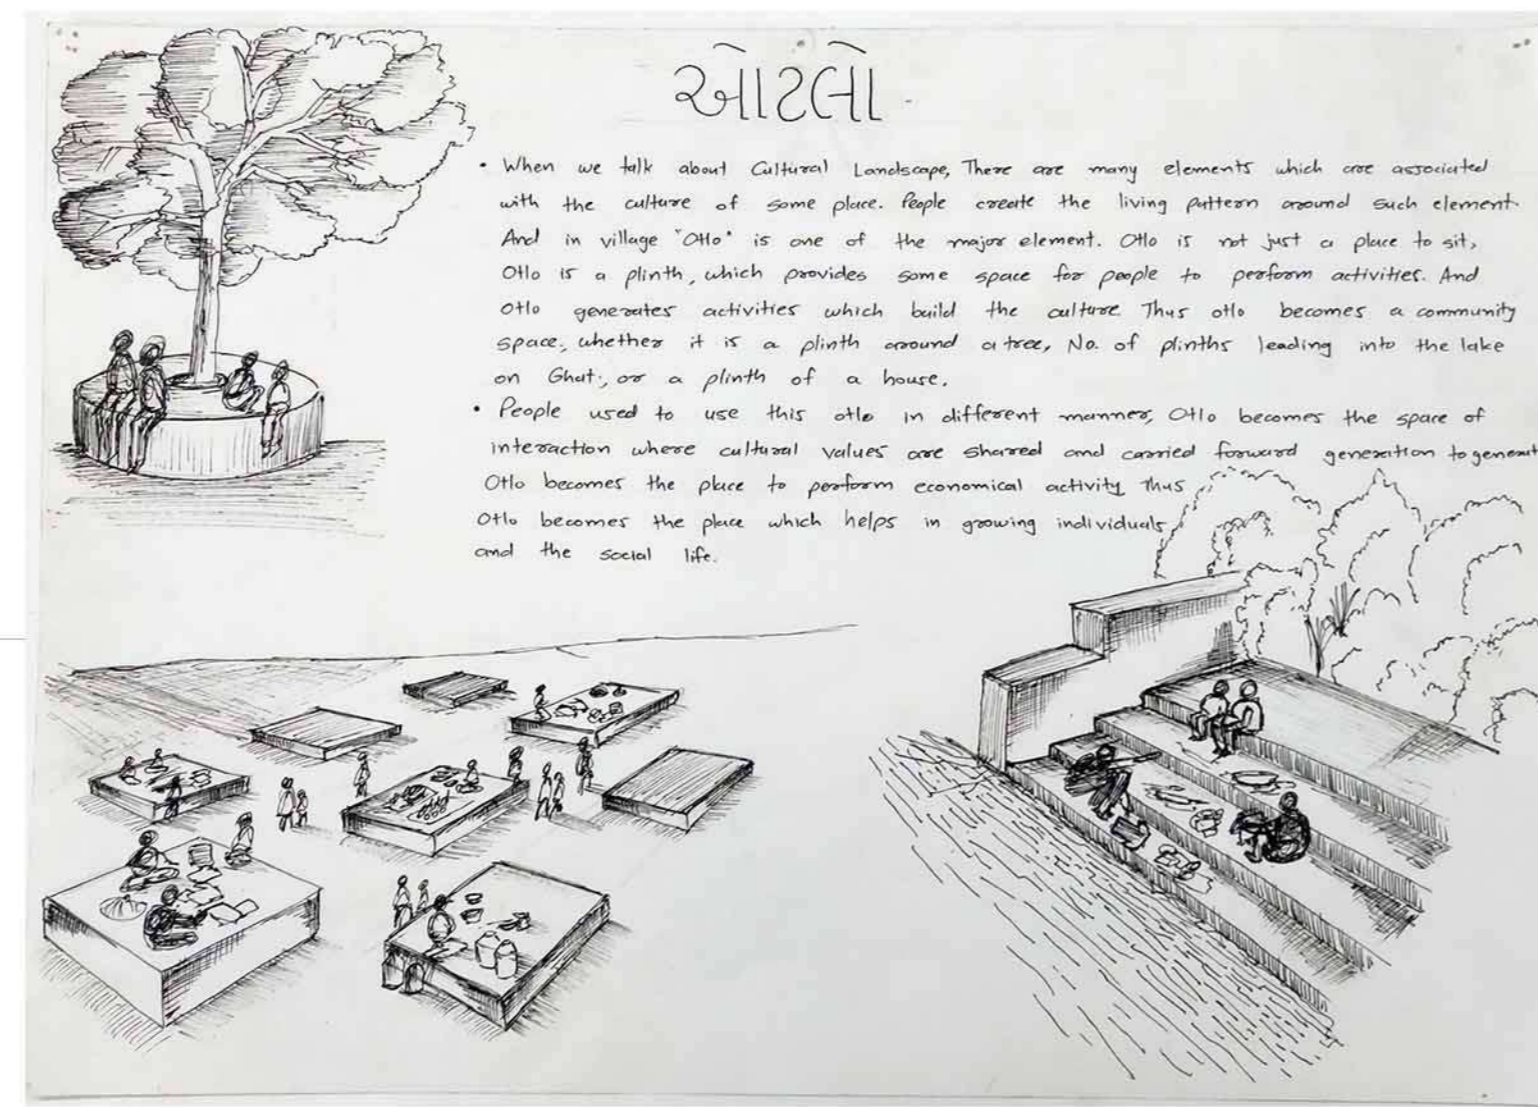 ઓટલો
• When we talk about Cultural Landscape, There are many elements which are associated
with the culture of some place. People create the living pattern around such element.
And in village "Otlo" is one of the major element. Otlo is not just a place to sit,
Otlo is a plinth, which provides some space for people to perform activities. And
Otlo generates activities which build the culture. Thus otlo becomes a community
space, whether it is a plinth around a tree, No. of plinths leading into the lake
on Ghat, or a plinth of a house.
• People used to use this otlo in different manner, Otlo becomes the space of
interaction where cultural values are shared and carried forward generation to generat
Otlo becomes the place to perform economical activity Thus
Otlo becomes the place which helps in growing individuals
and the social life.